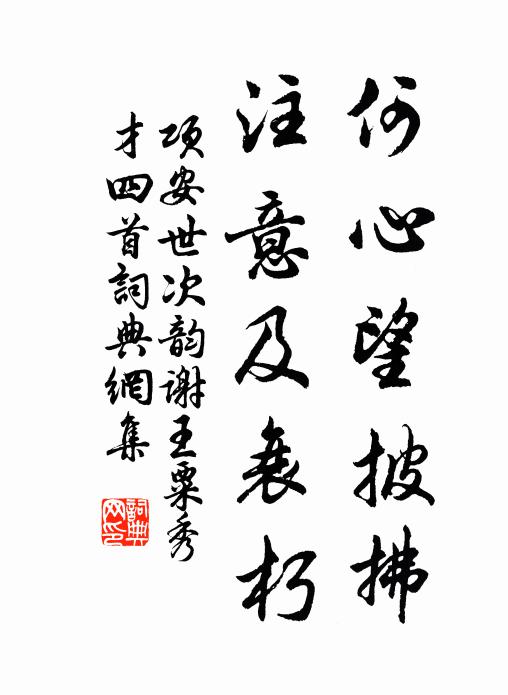 何心望披拂
注意及衰朽
項安世次韵謝王粟秀
才四首詞典網集
詞典
网印